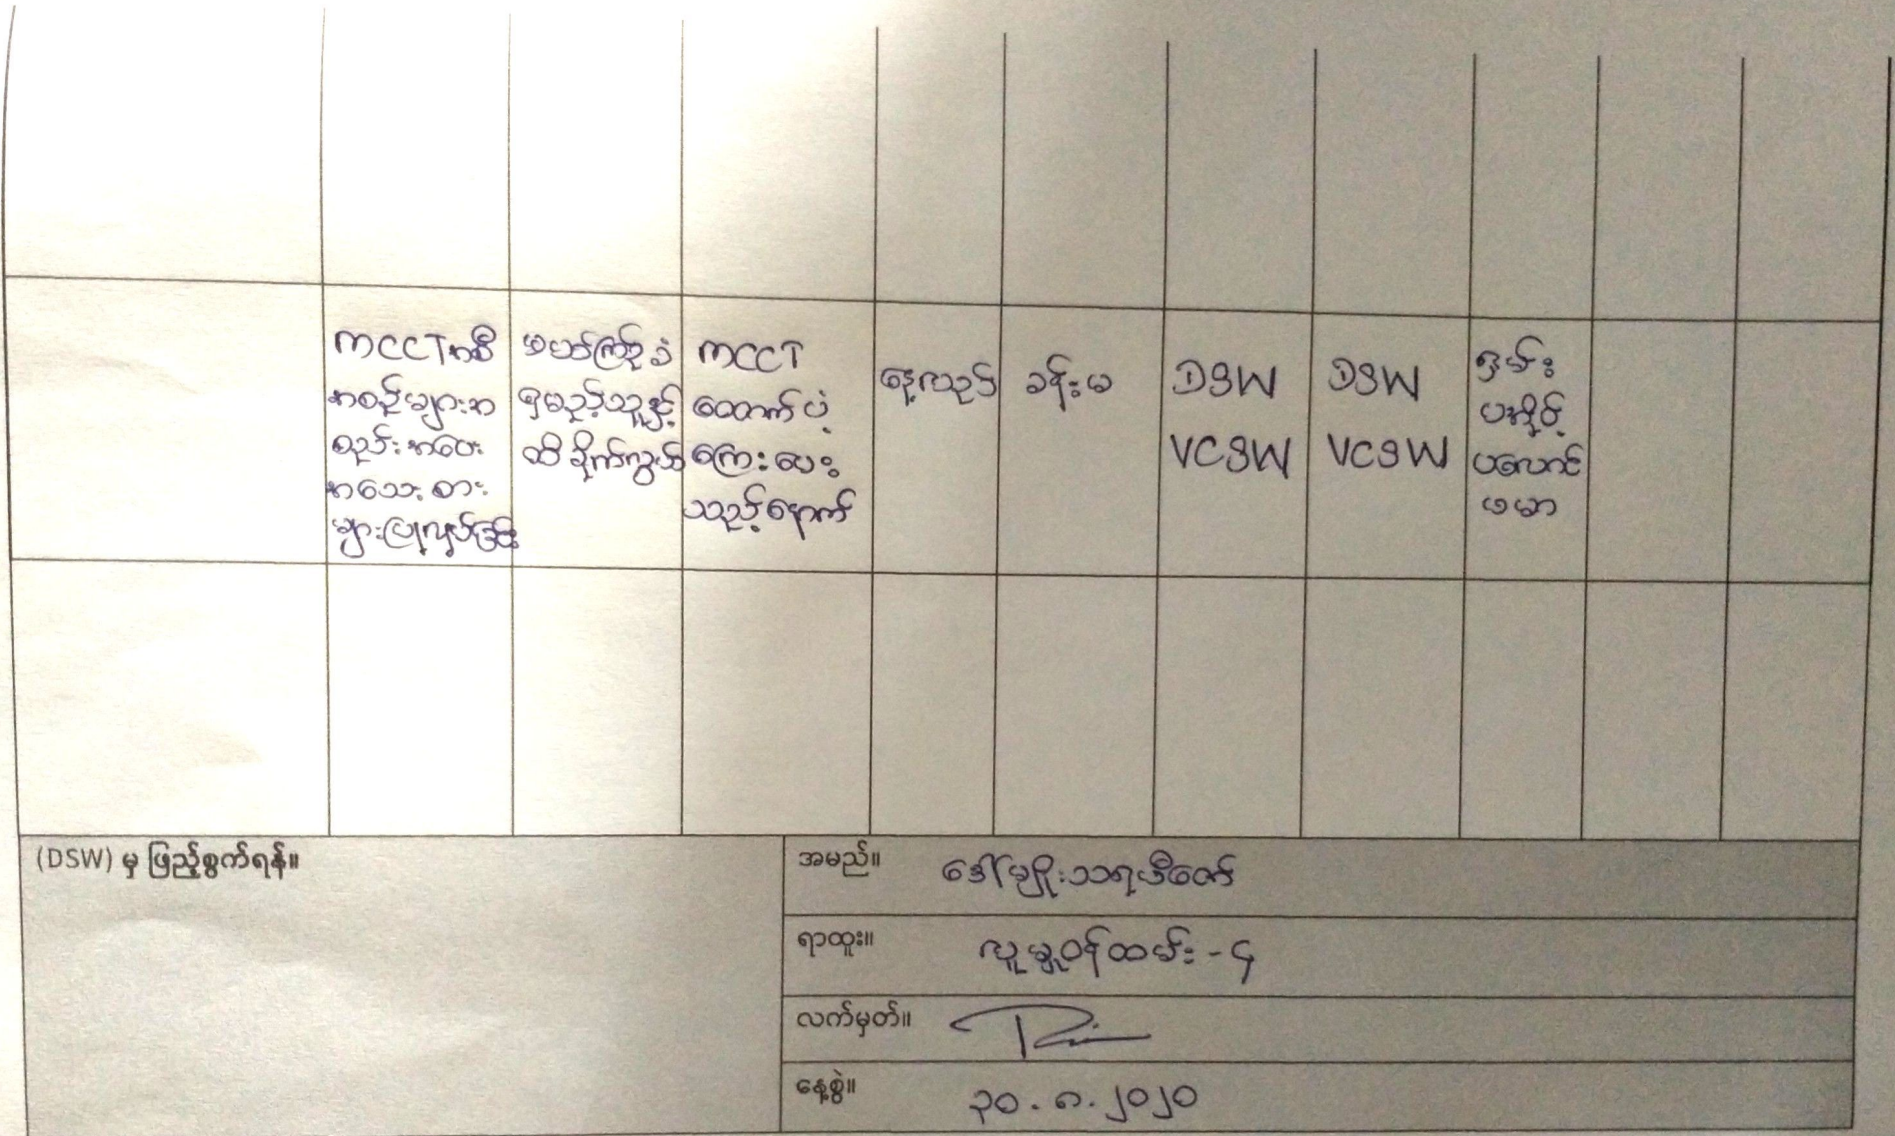 MCCT အစီ
အစဉ်များအ
စည်းအဝေး
အသေးစား
များပြုလုပ်ခြင်း
မဟာကြာဉ်ခံ
ရမည့်သူနှင့်
ထိခိုက်လွယ်
MCCT
ထောက်ပံ့
ကြေးပေး
သည့်နောက်
နေ့လည်
ခန်းမ
DSW
VCSW
DSW
VCSW
ရှမ်း
ပအိုဝ့်
ပလောင်
ဗမာ
(DSW) မှ ဖြည့်စွက်ရန်။
အမည်။ ဒေါ်မျိုးသရဖီဇော်
ရာထူး။ လူမှုဝန်ထမ်း - ၄
လက်မှတ်။
နေ့စွဲ။ ၃၀.၈.၂၀၂၀